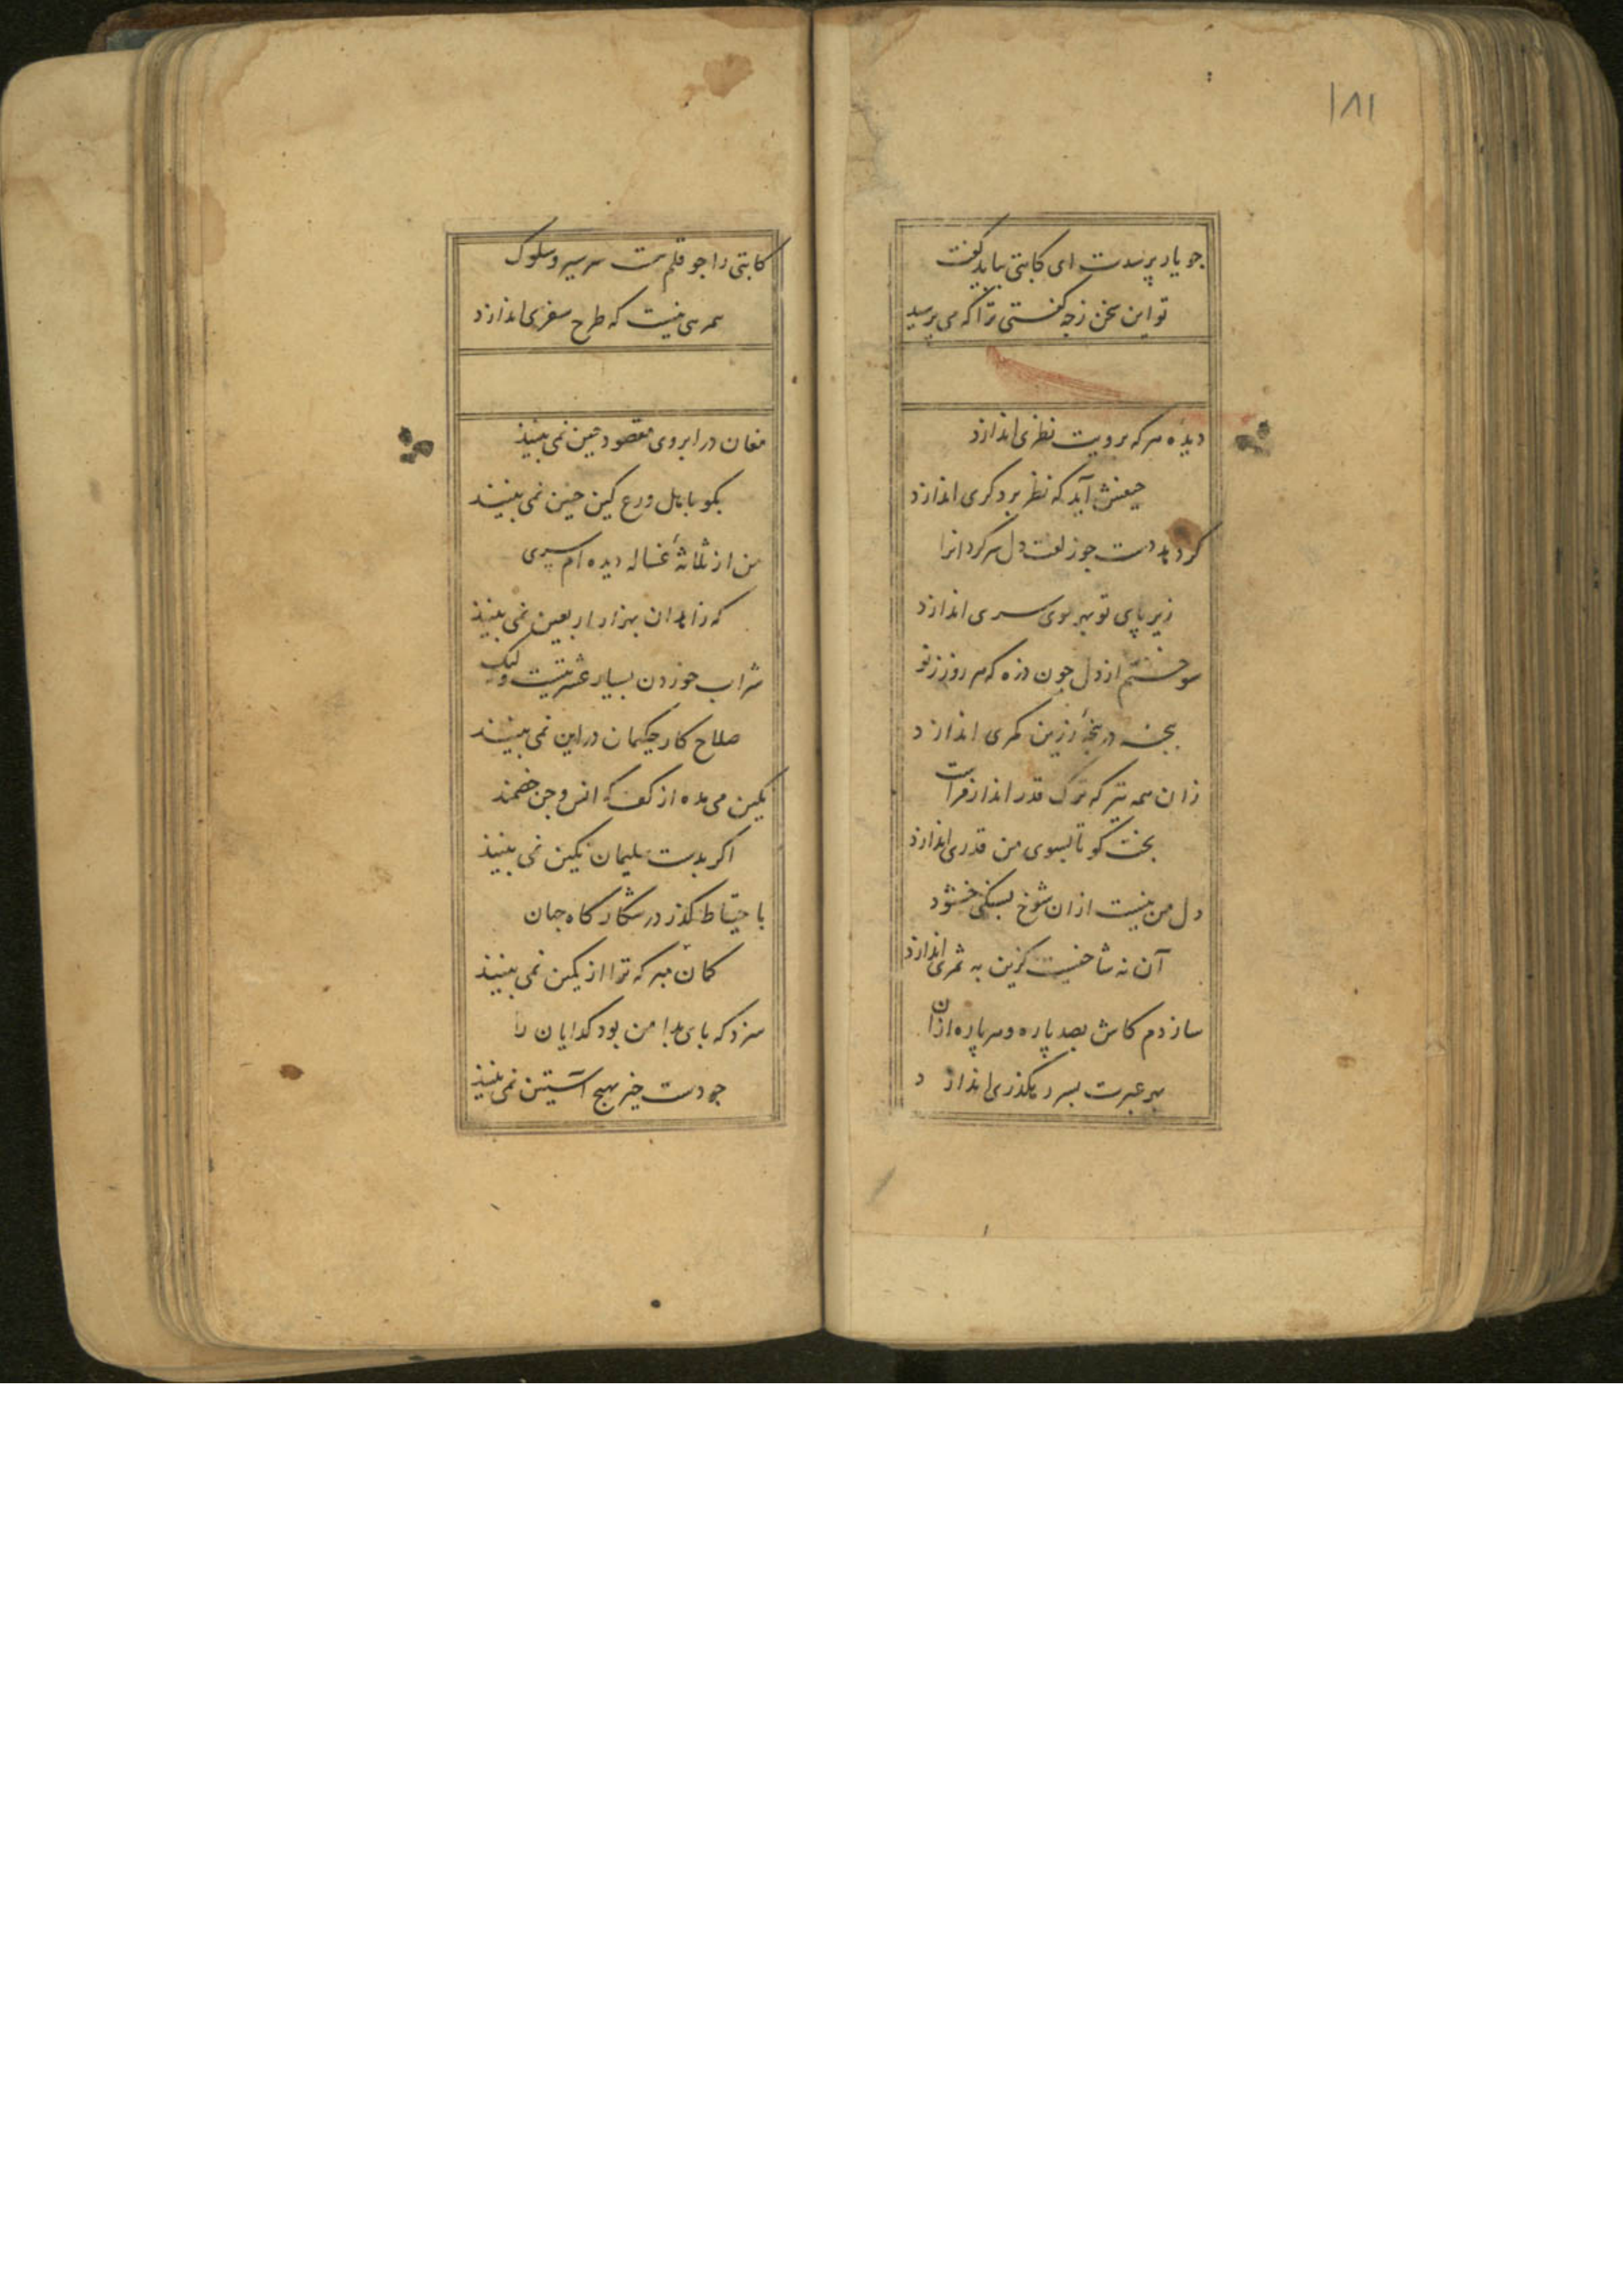 ۱۸۱
جو یار پرسدت ای کاتبی بباید گفت
تو این سخن زجه گفتی ترا که می پرسید
دیده هر که برویت نظری اندازد
حیفش آید که نظر بر دکری اندازد
کرد بد دست جو زلفت دل سرکردانرا
زیر پای تو بهر موی سری اندازد
سوختم از دل جون ذره که هر روز ز تو
بجه در بنجۀ زرین کمری اندازد
زان همه تیر که ترک قدر انداز تراست
بخت کو تا بسوی من قدری اندازد
دل من نیست از ان شوخ بسنکی خشنود
آن نه شاخیست کزین به ثمری اندازد
سازدم کاش بصد پاره و هر پاره از ان
بهر عبرت بسر رهکذری اندازد
کاتبی را جو قلم هست سر سیر و سلوک
همرهی نیست که طرح سفری اندازد
مغان در ابروی مقصود جین نمی بینند
بکو باهل ورع کین جنین نمی بینند
من از ثلاثۀ غساله دیده ام سری
که زاهدان بهزار اربعین نمی بینند
شراب خوردن بسیار عشرتیست ولیک
صلاح کار حکیمان در این نمی بینند
نکین می مده از کف که انس و جن خصمند
اکر بدست سلیمان نکین نمی بینند
باحتیاط کذر در شکار کاه جهان
کمان مبر که ترا از کمین نمی بینند
سزد که پای بدامن بود کدایان را
جو دست خیر بهیج آستین نمی بینند